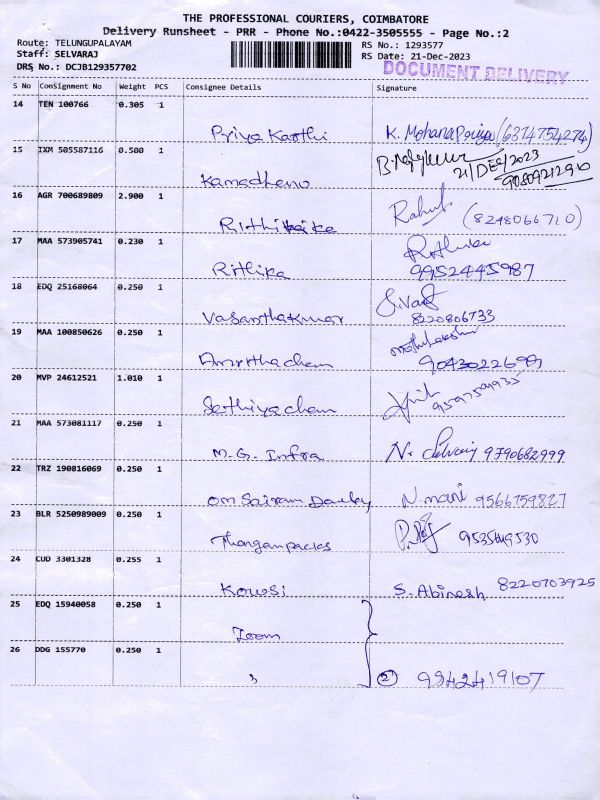 THE PROFESSIONAL COURIERS, COIMBATORE
Delivery Runsheet - PRR - Phone No.:0422-3505555 - Page No.:2
Route: TELUNGUPALAYAM RS No.: 1293577
Staff: SELVARAJ RS Date: 21-Dec-2023
DRS No.: DCJB129357702 DOCUMENT DELIVERY
S No Consignment No Weight PCS Consignee Details Signature
14 TEN 100766 0.305 1
Priya Karthi K. Mohana Priya (6374754274)
15 IXM 505587116 0.500 1
21/DEC/2023
Kamadhenu 9080921290
16 AGR 700689809 2.900 1
Rahul (8248066710)
17 MAA 573905741 0.230 1
Rithika 9952445987
18 EDQ 25168064 0.250 1
Vasanthakumar 8220806733
19 MAA 100850626 0.250 1
Amirthachem
20 MVP 24612521 1.010 1
Sathiyachem 9597599935
21 MAA 573081117 0.250 1
M.G. Infra N. Selvaraj 9790682999
22 TRZ 190816069 0.250 1
Om Sairam N. mani 9566759827
23 BLR 5250989009 0.250 1
Thangampacks
24 CUD 3301328 0.255 1
Kowsi S. Abinesh 8220703925
25 EDQ 15940058 0.250 1
Zoom
26 DDG 155770 0.250 1
" 2 9842419107